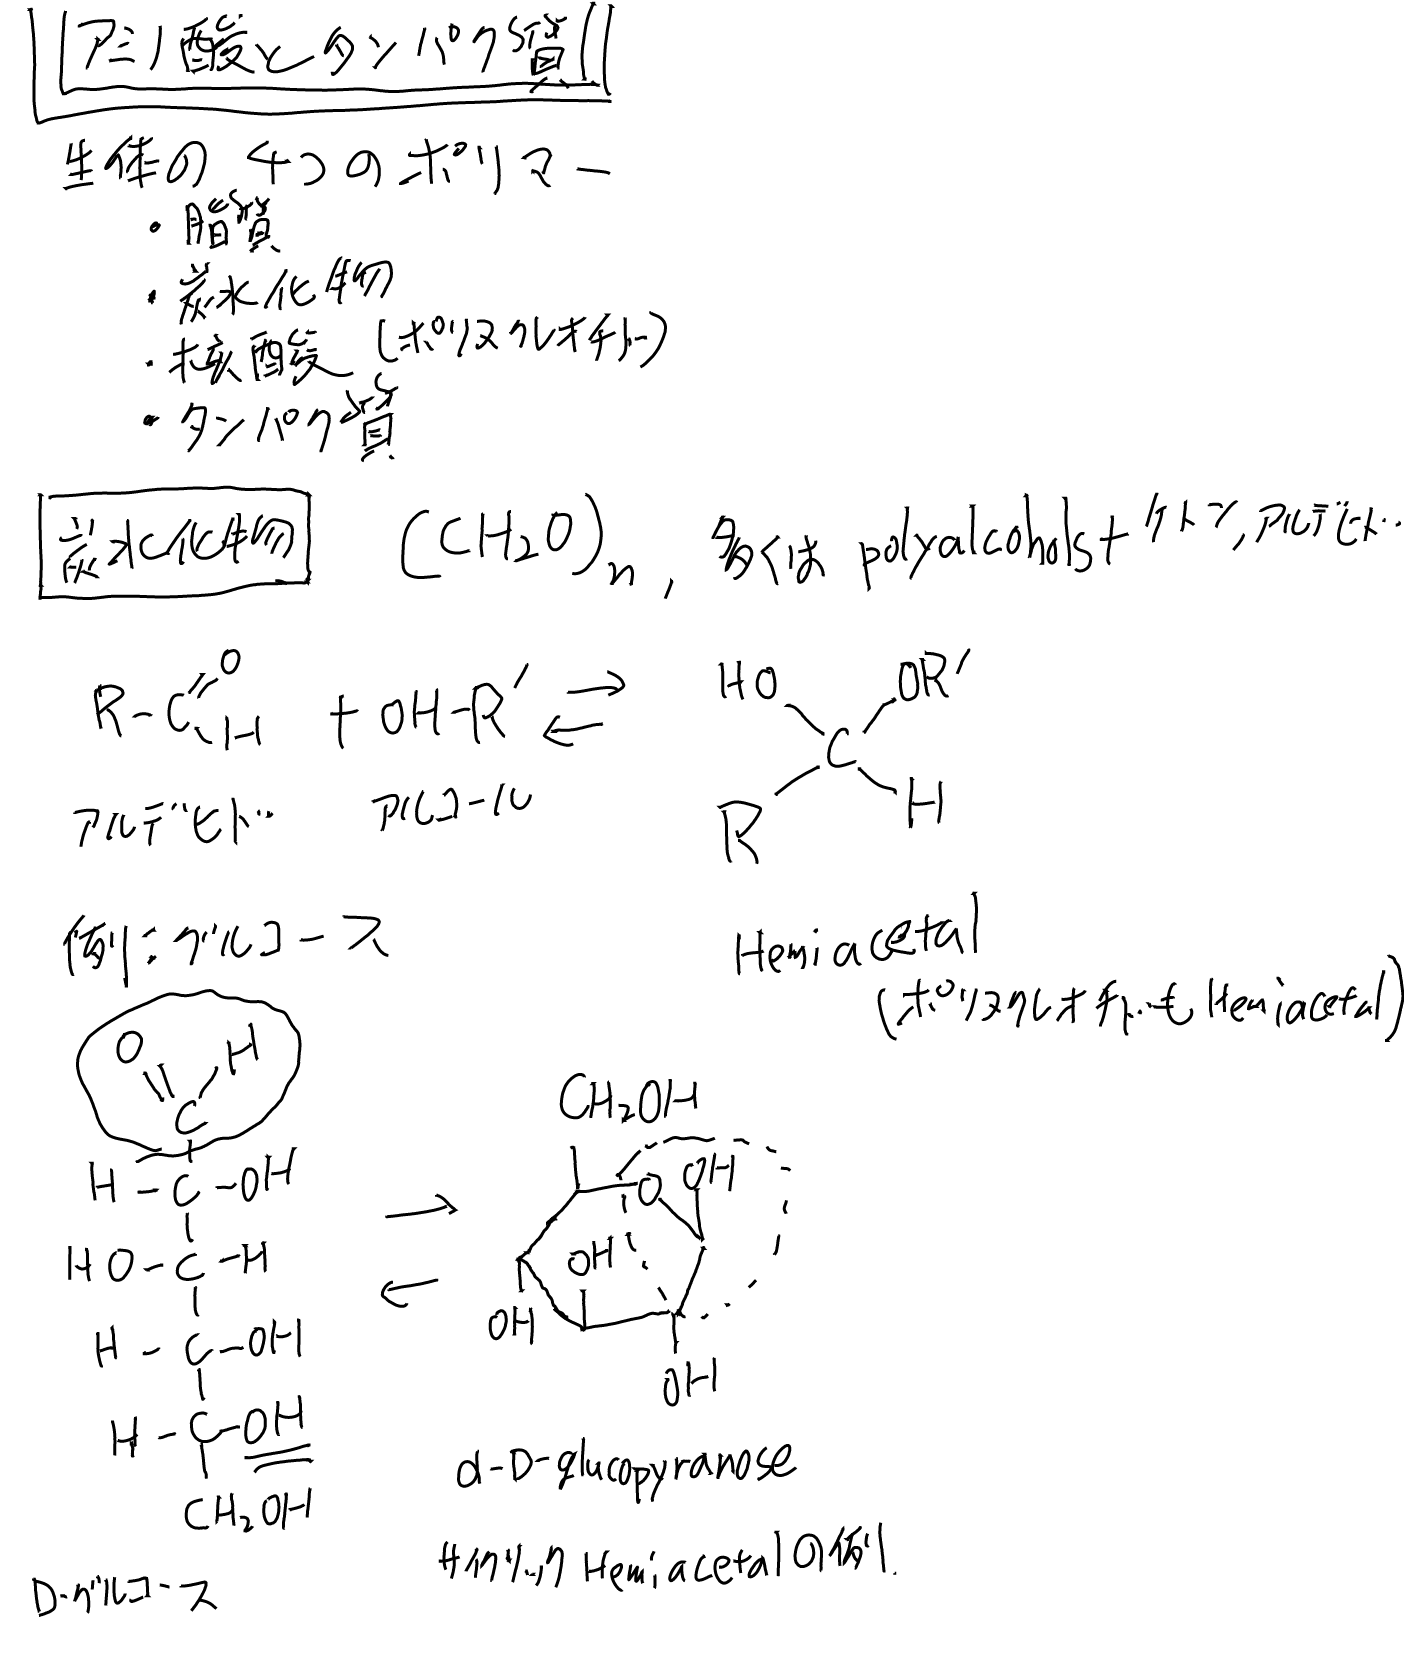 アミノ酸とタンパク質
生体の4つのポリマー
・脂質
・炭水化物
・核酸 (ポリヌクレオチド)
・タンパク質
炭水化物 (CH₂O)n, 多くは polyalcohols + ケトン, アルデヒド
R-C=O H + OH-R' ⇄ HO OR' C R H
アルデヒド アルコール
Hemiacetal
(ポリヌクレオチドも Hemiacetal)
例:グルコース
O H
C
H-C-OH
HO-C-H
H-C-OH
H-C-OH
CH₂OH
D-グルコース
CH₂OH
O OH
OH
OH
OH
α-D-glucopyranose
サイクリック Hemiacetalの例.